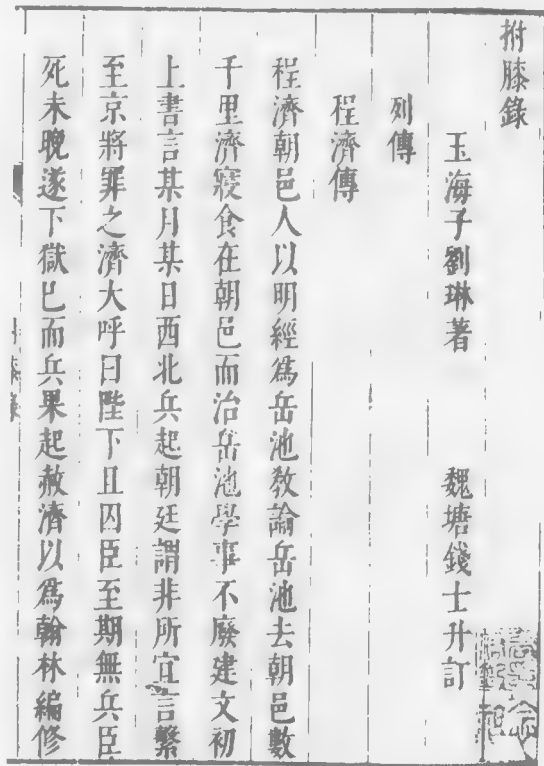 拊膝錄
玉海子劉琳著 魏塘錢士升訂
列傳
程濟傳
程濟朝邑人以明經爲岳池教諭岳池去朝邑數
千里濟寢食在朝邑而治岳池學事不廢建文初
上書言某月某日西北兵起朝廷謂非所宜言繫
至京將罪之濟大呼曰陛下且囚臣至期無兵臣
死未晚遂下獄已而兵果起赦濟以爲翰林編修